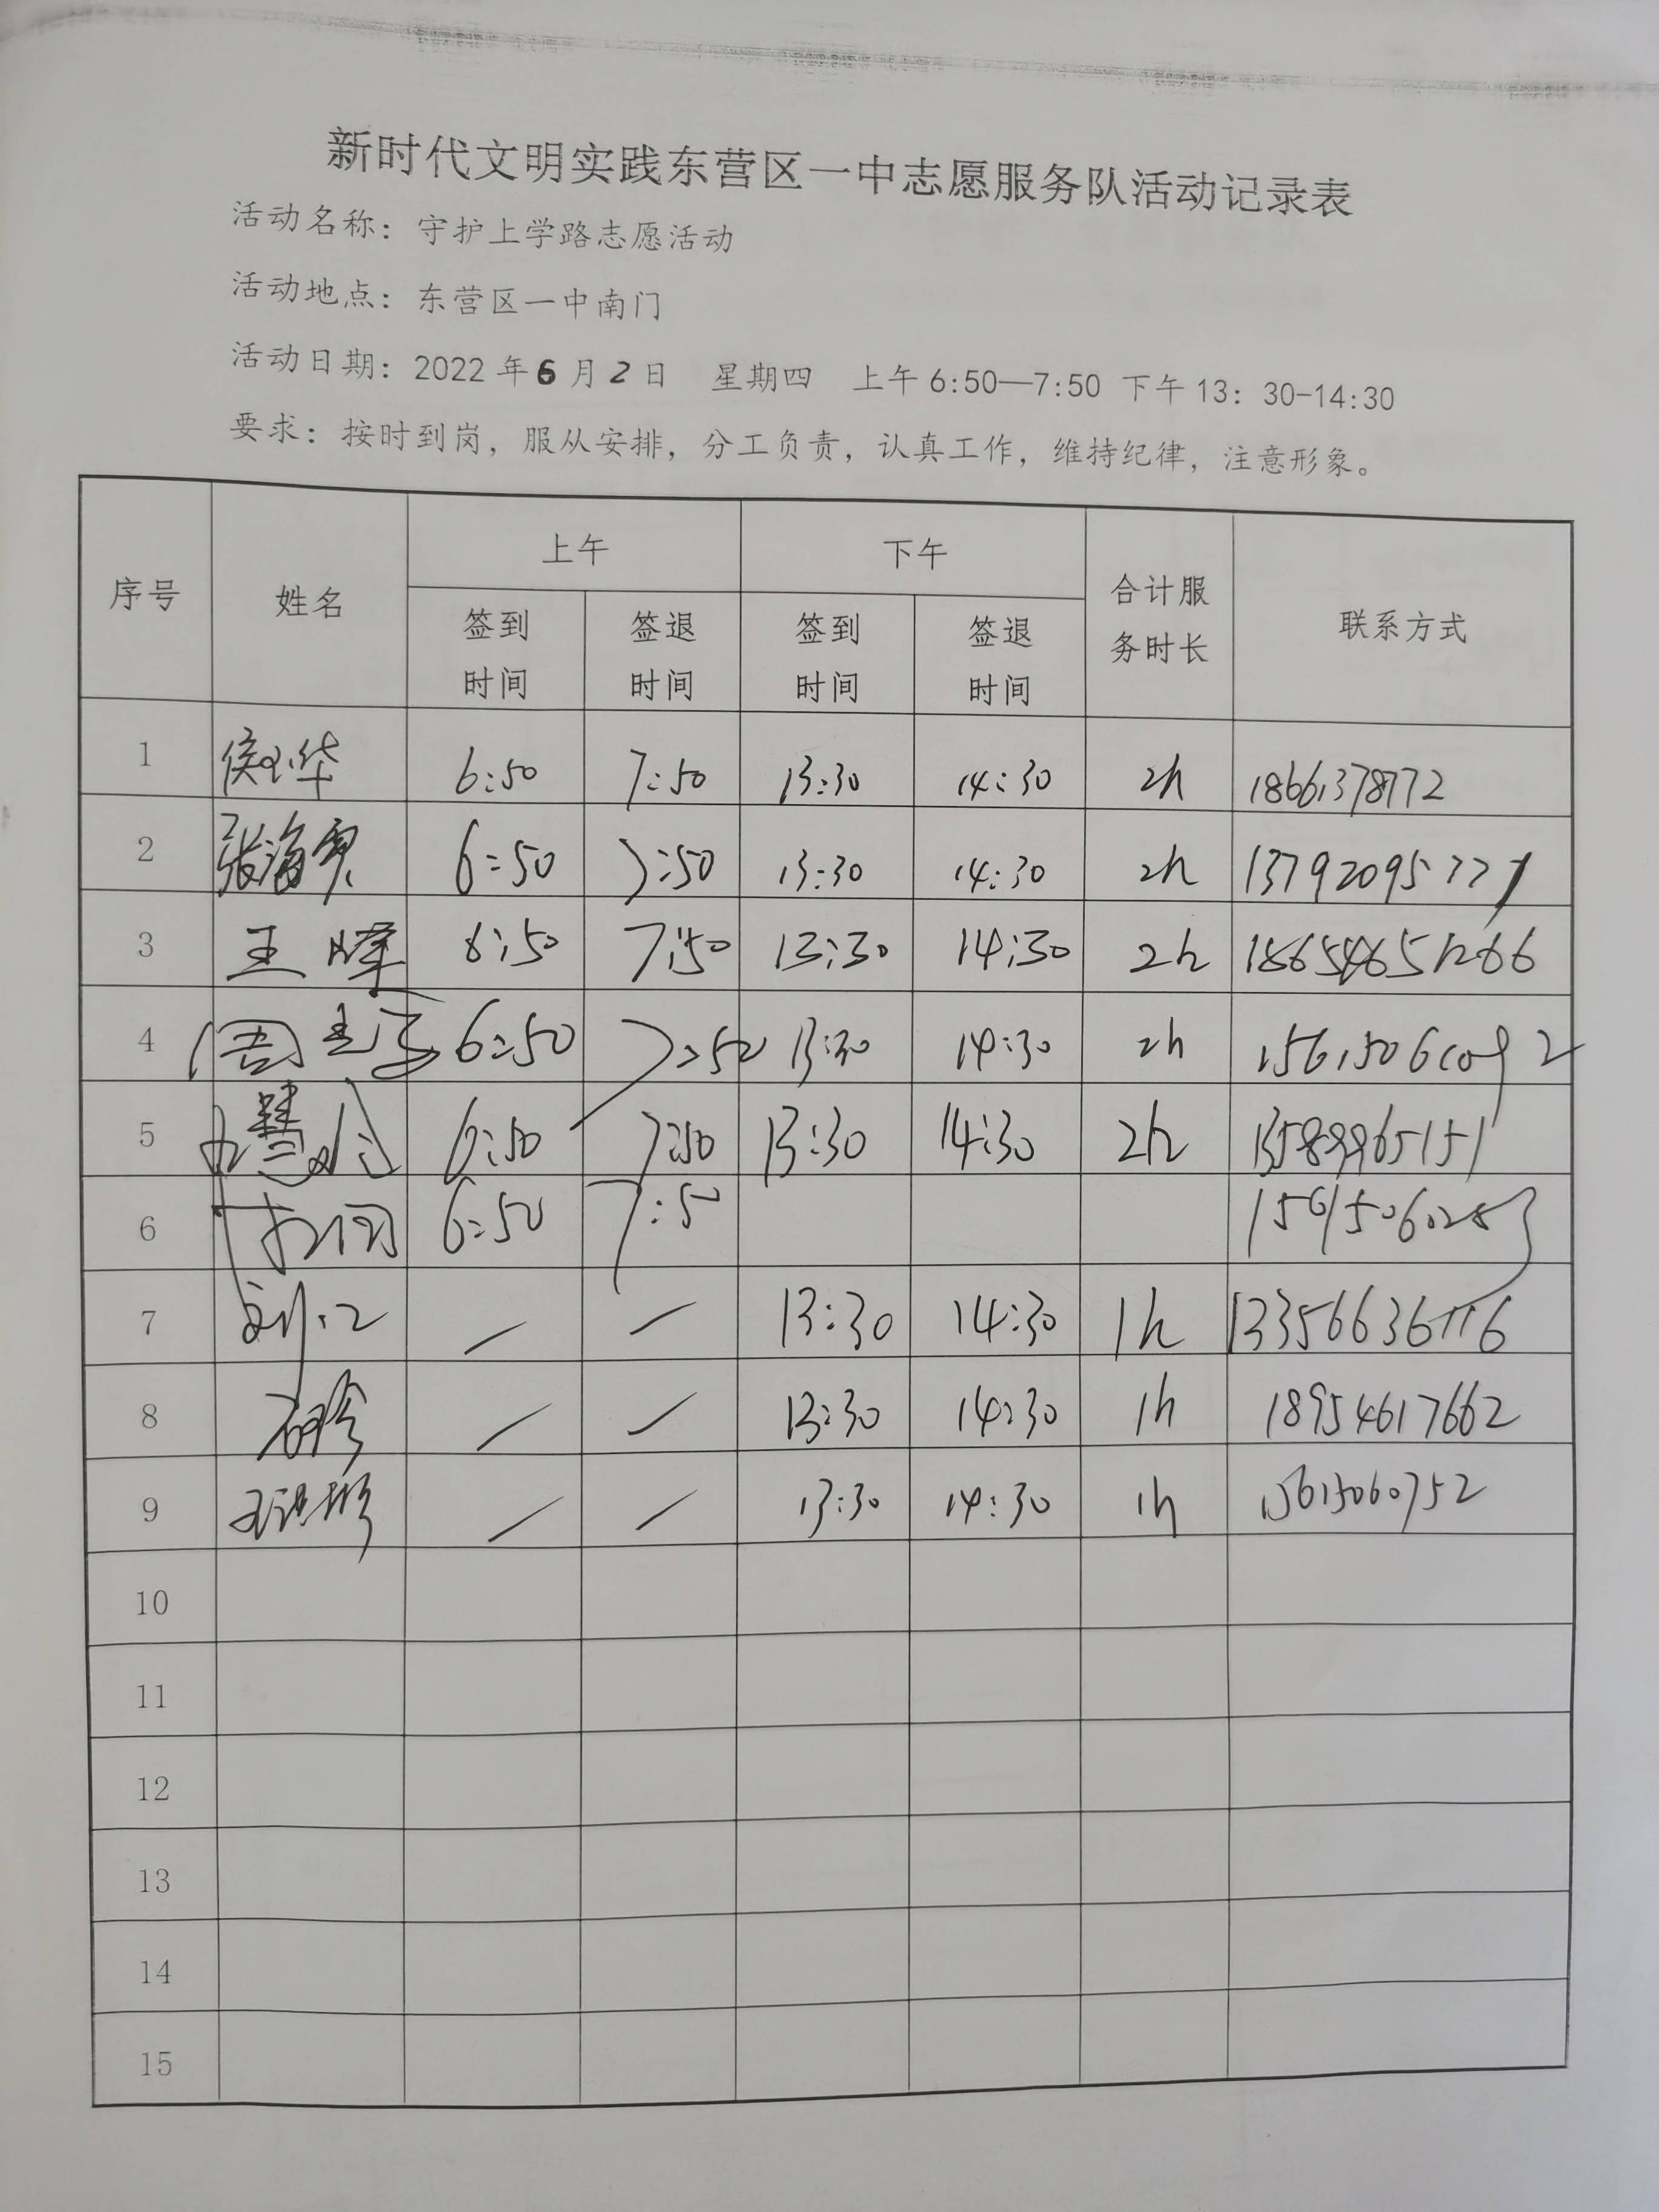 新时代文明实践东营区一中志愿服务队活动记录表
活动名称：守护上学路志愿活动
活动地点：东营区一中南门
活动日期：2022年6月2日 星期四 上午6:50—7:50 下午13：30-14:30
要求：按时到岗，服从安排，分工负责，认真工作，维持纪律，注意形象。
序号 姓名 上午 下午 合计服务时长 联系方式
签到时间 签退时间 签到时间 签退时间
1 6:50 7:50 13:30 14:30 2h 18661378772
2 6:50 7:50 13:30 14:30 2h
3 王峰 6:50 7:50 13:30 14:30 2h
4 6:50 7:50 13:30 14:30 2h
5 6:50 7:50 13:30 14:30 2h 13589965151
6 6:50 7:50
7 — — 13:30 14:30 1h 13356636116
8 — — 13:30 14:30 1h 18954617662
9 — — 13:30 14:30 1h 15615060752
10
11
12
13
14
15